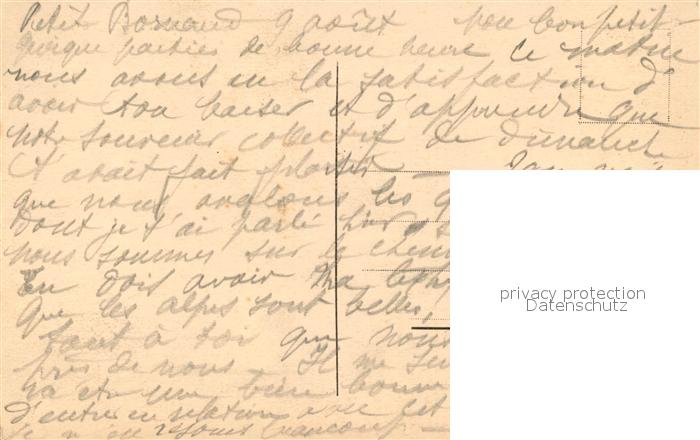 Petit Bornand 9 août Mon bon petit
quoique parties de bonne heure ce matin
nous avons eu la satisfaction d'
avoir ton baiser et d'apprendre que
notre souvenir collectif de dimanche
t'avait fait plaisir
que nous avalons les
Dont je t'ai parlé hier
nous sommes sur le
Tu dois avoir ma
que les alpes sont belles,
tant à toi que nous
près de nous Il me
va être une bien bonne
D'entrer en relation avec cet
je m'en réjouis beaucoup
privacy protection
Datenschutz